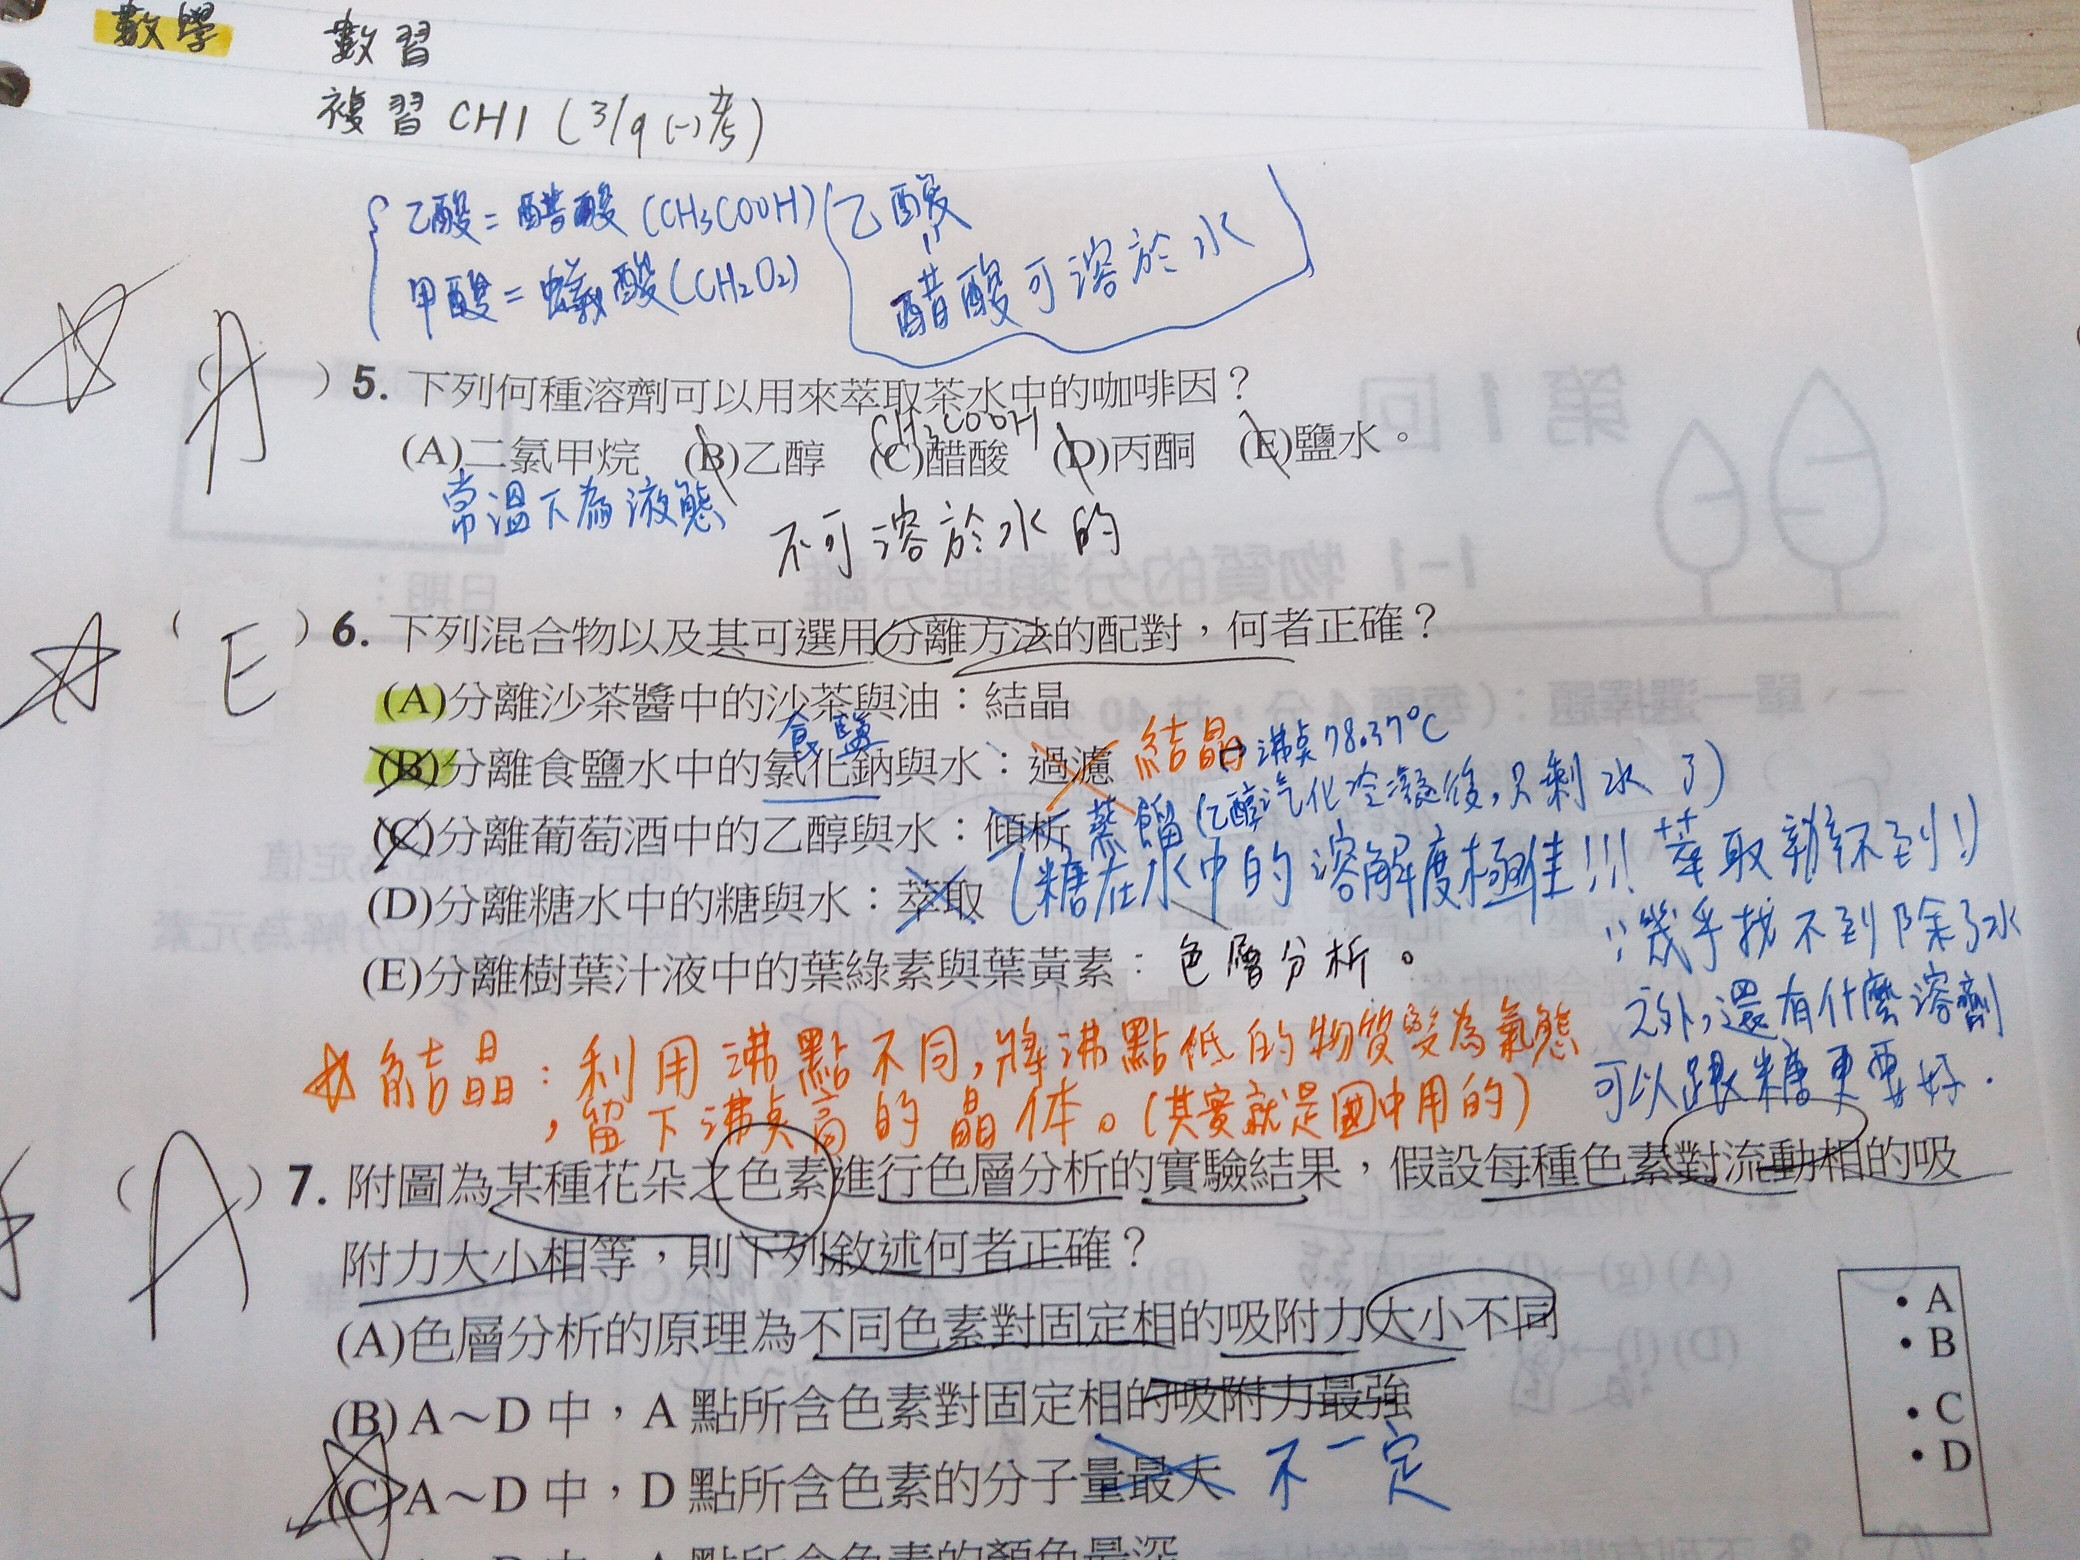 數學 數習
複習 CH1 (3/9 (一)考)
乙酸 = 醋酸 (CH3COOH)
甲酸 = 蟻酸 (CH2O2)
乙酸
醋酸可溶於水
(A) 5. 下列何種溶劑可以用來萃取茶水中的咖啡因？
CH3COOH
(A)二氯甲烷 (B)乙醇 (C)醋酸 (D)丙酮 (E)鹽水。
常溫下為液態
不可溶於水的
(E) 6. 下列混合物以及其可選用分離方法的配對，何者正確？
(A)分離沙茶醬中的沙茶與油：結晶
食鹽
(B)分離食鹽水中的氯化鈉與水：過濾 結晶
沸點78.37°C
(C)分離葡萄酒中的乙醇與水：傾析 蒸餾 (乙醇汽化冷凝後，只剩水了)
(D)分離糖水中的糖與水：萃取 (糖在水中的溶解度極佳!!! 萃取辦不到!)
∵幾乎找不到除了水
之外，還有什麼溶劑
可以跟糖更要好.
(E)分離樹葉汁液中的葉綠素與葉黃素：色層分析。
☆結晶：利用沸點不同，將沸點低的物質變為氣態
，留下沸點高的晶体。(其實就是國中用的)
(A) 7. 附圖為某種花朵之色素進行色層分析的實驗結果，假設每種色素對流動相的吸
附力大小相等，則下列敘述何者正確？
(A)色層分析的原理為不同色素對固定相的吸附力大小不同
(B)A～D 中，A 點所含色素對固定相的吸附力最強
(C)A～D 中，D 點所含色素的分子量最大 不一定
A
B
C
D